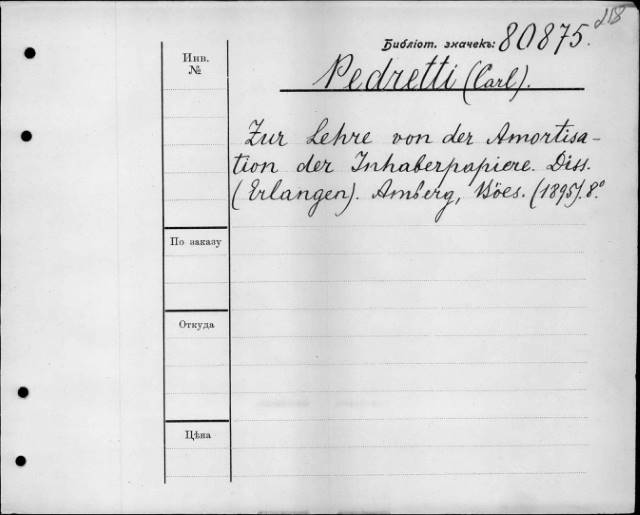 218
Библіот. значекъ: 80875.
Инв.
№
Pedretti (Carl).
Zur Lehre von der Amortisa-
tion der Inhaberpapiere. Diss.
(Erlangen). Amberg, Böes. (1895). 8°
По заказу
Откуда
Цѣна